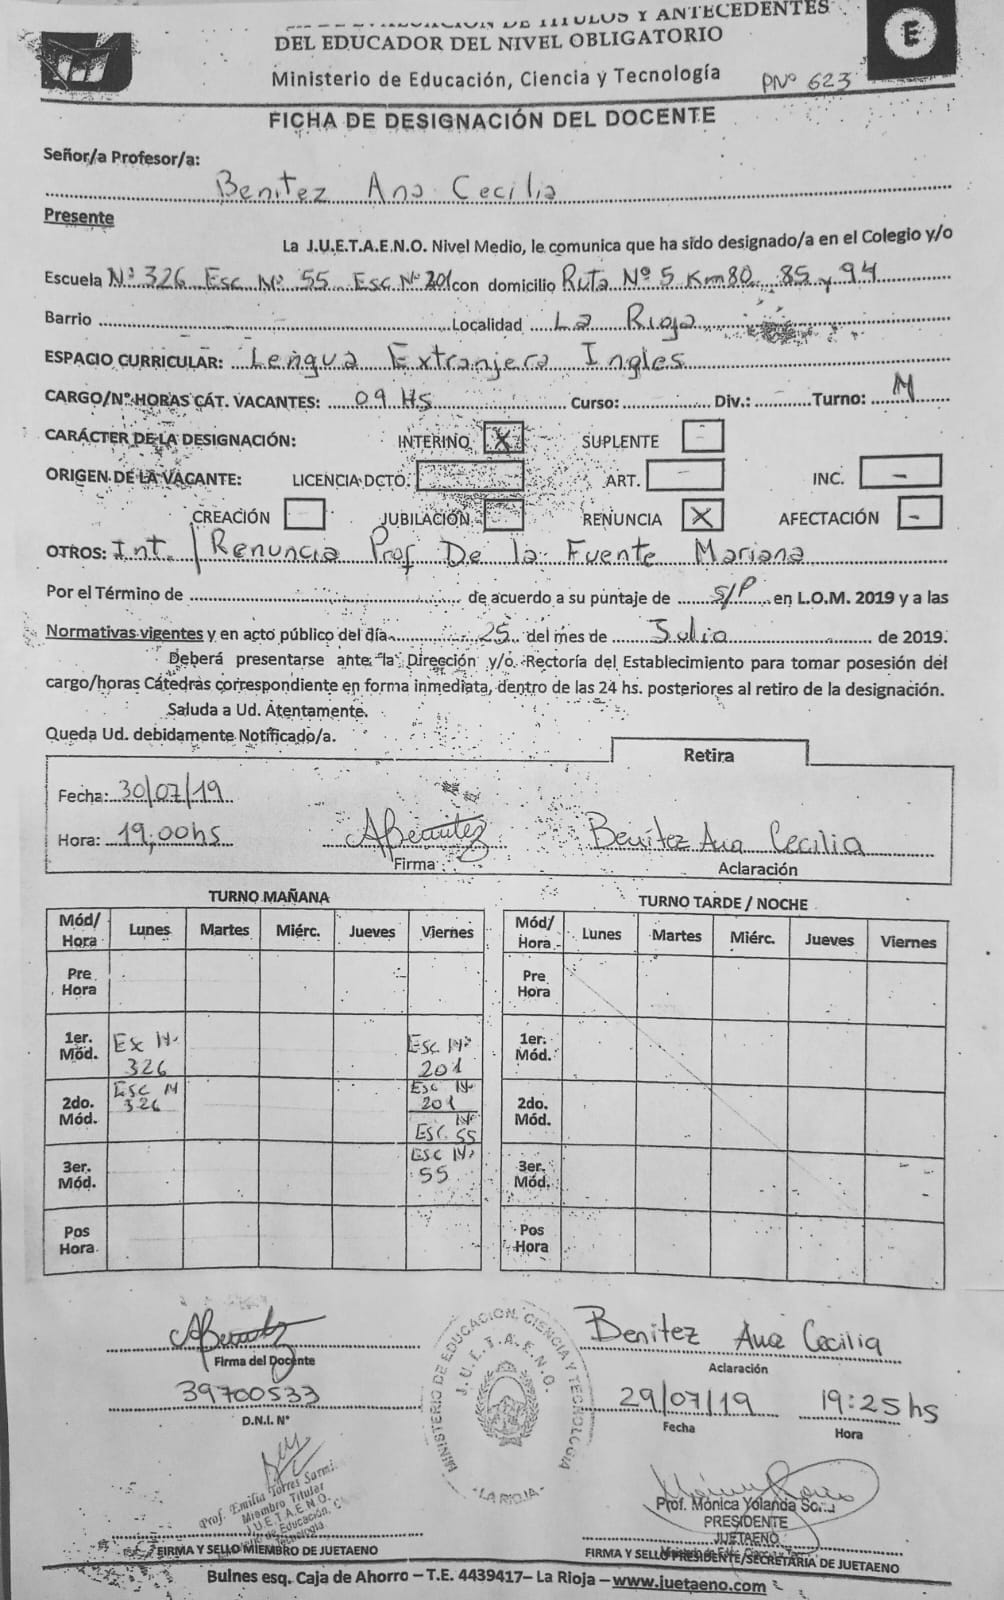 DE TITULOS Y ANTECEDENTES
DEL EDUCADOR DEL NIVEL OBLIGATORIO
E
Ministerio de Educación, Ciencia y Tecnología
PNº 623
FICHA DE DESIGNACIÓN DEL DOCENTE
Señor/a Profesor/a:
Benitez Ana Cecilia
Presente
La J.U.E.T.A.E.N.O. Nivel Medio, le comunica que ha sido designado/a en el Colegio y/o
Escuela Nº 326 Esc Nº 55 Esc Nº 201 con domicilio Ruta Nº 5 Km 80, 85 y 94
Barrio Localidad La Rioja
ESPACIO CURRICULAR: Lengua Extranjera Ingles
CARGO/Nº HORAS CÁT. VACANTES: 09 Hs Curso: Div.: Turno: M
CARÁCTER DE LA DESIGNACIÓN: INTERINO X SUPLENTE -
ORIGEN DE LA VACANTE: LICENCIA DCTO. ART. - INC. -
CREACIÓN - JUBILACIÓN - RENUNCIA X AFECTACIÓN -
OTROS: Int. / Renuncia Prof De la Fuente Mariana
Por el Término de de acuerdo a su puntaje de S/P en L.O.M. 2019 y a las
Normativas vigentes y en acto público del día 25 del mes de Julio de 2019.
Deberá presentarse ante la Dirección y/o Rectoría del Establecimiento para tomar posesión del
cargo/horas Cátedras correspondiente en forma inmediata, dentro de las 24 hs. posteriores al retiro de la designación.
Saluda a Ud. Atentamente.
Queda Ud. debidamente Notificado/a.
Retira
Fecha: 30/07/19
Hora: 19,00hs ABenitez Benítez Ana Cecilia
Firma Aclaración
TURNO MAÑANA
Mód/ Hora Lunes Martes Miérc. Jueves Viernes
Pre Hora
1er. Mód. Ex Nº 326 Esc Nº 201
2do. Mód. Esc N 326 Esc Nº 201 Esc. Nº 55
3er. Mód. Esc Nº 55
Pos Hora
TURNO TARDE / NOCHE
Mód/ Hora Lunes Martes Miérc. Jueves Viernes
Pre Hora
1er. Mód.
2do. Mód.
3er. Mód.
Pos Hora
ABenitez
Firma del Docente
39700533
D.N.I. N°
MINISTERIO DE EDUCACION, CIENCIA Y TECNOLOGIA
J.U.E.T.A.E.N.O.
- LA RIOJA -
Benitez Ana Cecilia
Aclaración
29/07/19 19:25 hs
Fecha Hora
Prof. Emilia Torres
Miembro Titular
J.U.E.T.A.E.N.O.
de Educación, C
Tecnología
FIRMA Y SELLO MIEMBRO DE JUETAENO
Prof. Mónica Yolanda
PRESIDENTE
JUETAENO
FIRMA Y SELLO PRESIDENTE/SECRETARIA DE JUETAENO
Bulnes esq. Caja de Ahorro – T.E. 4439417– La Rioja – www.juetaeno.com